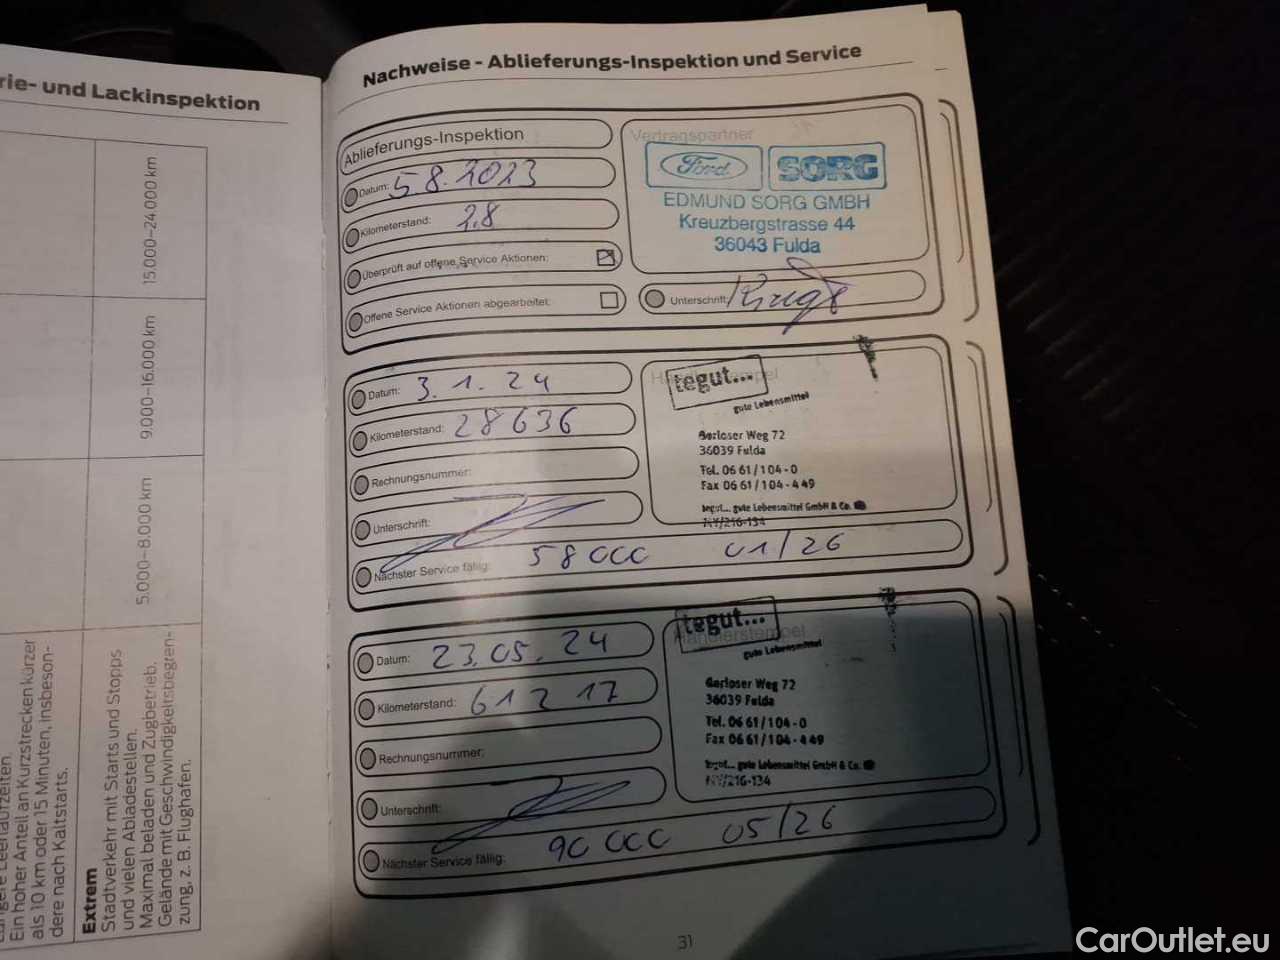 rie- und Lackinspektion
15.000–24.000 km
9.000–16.000 km
5.000–8.000 km
Ein hoher Anteil an Kurzstrecken kürzer
als 10 km oder 15 Minuten, insbeson-
dere nach Kaltstarts.
Extrem
Stadtverkehr mit Starts und Stopps
und vielen Abladestellen.
Maximal beladen und Zugbetrieb.
Gelände mit Geschwindigkeitsbegren-
zung, z. B. Flughafen.
Nachweise - Ablieferungs-Inspektion und Service
Ablieferungs-Inspektion
Datum: 5.8.2023
Kilometerstand: 2,8
Überprüft auf offene Service Aktionen:
Offene Service Aktionen abgearbeitet:
Vertragspartner
Ford SORG
EDMUND SORG GMBH
Kreuzbergstrasse 44
36043 Fulda
Unterschrift:
Datum: 3.1.24
Kilometerstand: 28636
Rechnungsnummer:
Unterschrift:
Nächster Service fällig: 58000 01/26
tegut...
gute Lebensmittel
Gerloser Weg 72
36039 Fulda
Tel. 06 61/104-0
Fax 06 61/104-449
tegut... gute Lebensmittel GmbH & Co.
Datum: 23.05.24
Kilometerstand: 61217
Rechnungsnummer:
Unterschrift:
Nächster Service fällig: 90000 05/26
Händlerstempel
tegut...
gute Lebensmittel
Gerloser Weg 72
36039 Fulda
Tel. 06 61/104-0
Fax 06 61/104-449
tegut... gute Lebensmittel GmbH & Co.
31
CarOutlet.eu